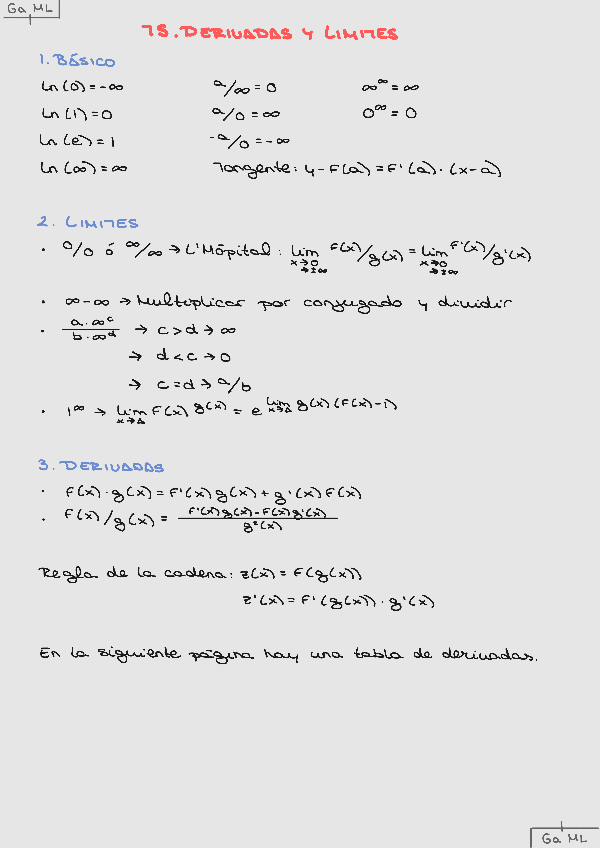 Ga ML
7S. DERIVADAS Y LIMITES
1. BÁSICO
Ln(0) = -∞ a/∞ = 0 ∞^∞ = ∞
Ln(1) = 0 a/0 = ∞ 0^∞ = 0
Ln(e) = 1 -a/0 = -∞
Ln(∞) = ∞ Tangente: y - F(a) = F'(a) · (x - a)
2. LIMITES
· 0/0 ó ∞/∞ → L'Hôpital: lim x→0 →±∞ F(x)/g(x) = lim x→0 →±∞ F'(x)/g'(x)
· ∞-∞ → Multiplicar por conjugado y dividir
· a·∞^c / b·∞^d → c > d → ∞
→ d < c → 0
→ c = d → a/b
· 1^∞ → lim x→Δ F(x)^g(x) = e^lim x→Δ g(x)(F(x)-1)
3. DERIVADAS
· F(x) · g(x) = F'(x) g(x) + g'(x) F(x)
· F(x)/g(x) = F'(x)g(x) - F(x)g'(x) / g²(x)
Regla de la cadena: z(x) = F(g(x))
z'(x) = F'(g(x)) · g'(x)
En la siguiente página hay una tabla de derivadas.
Ga ML